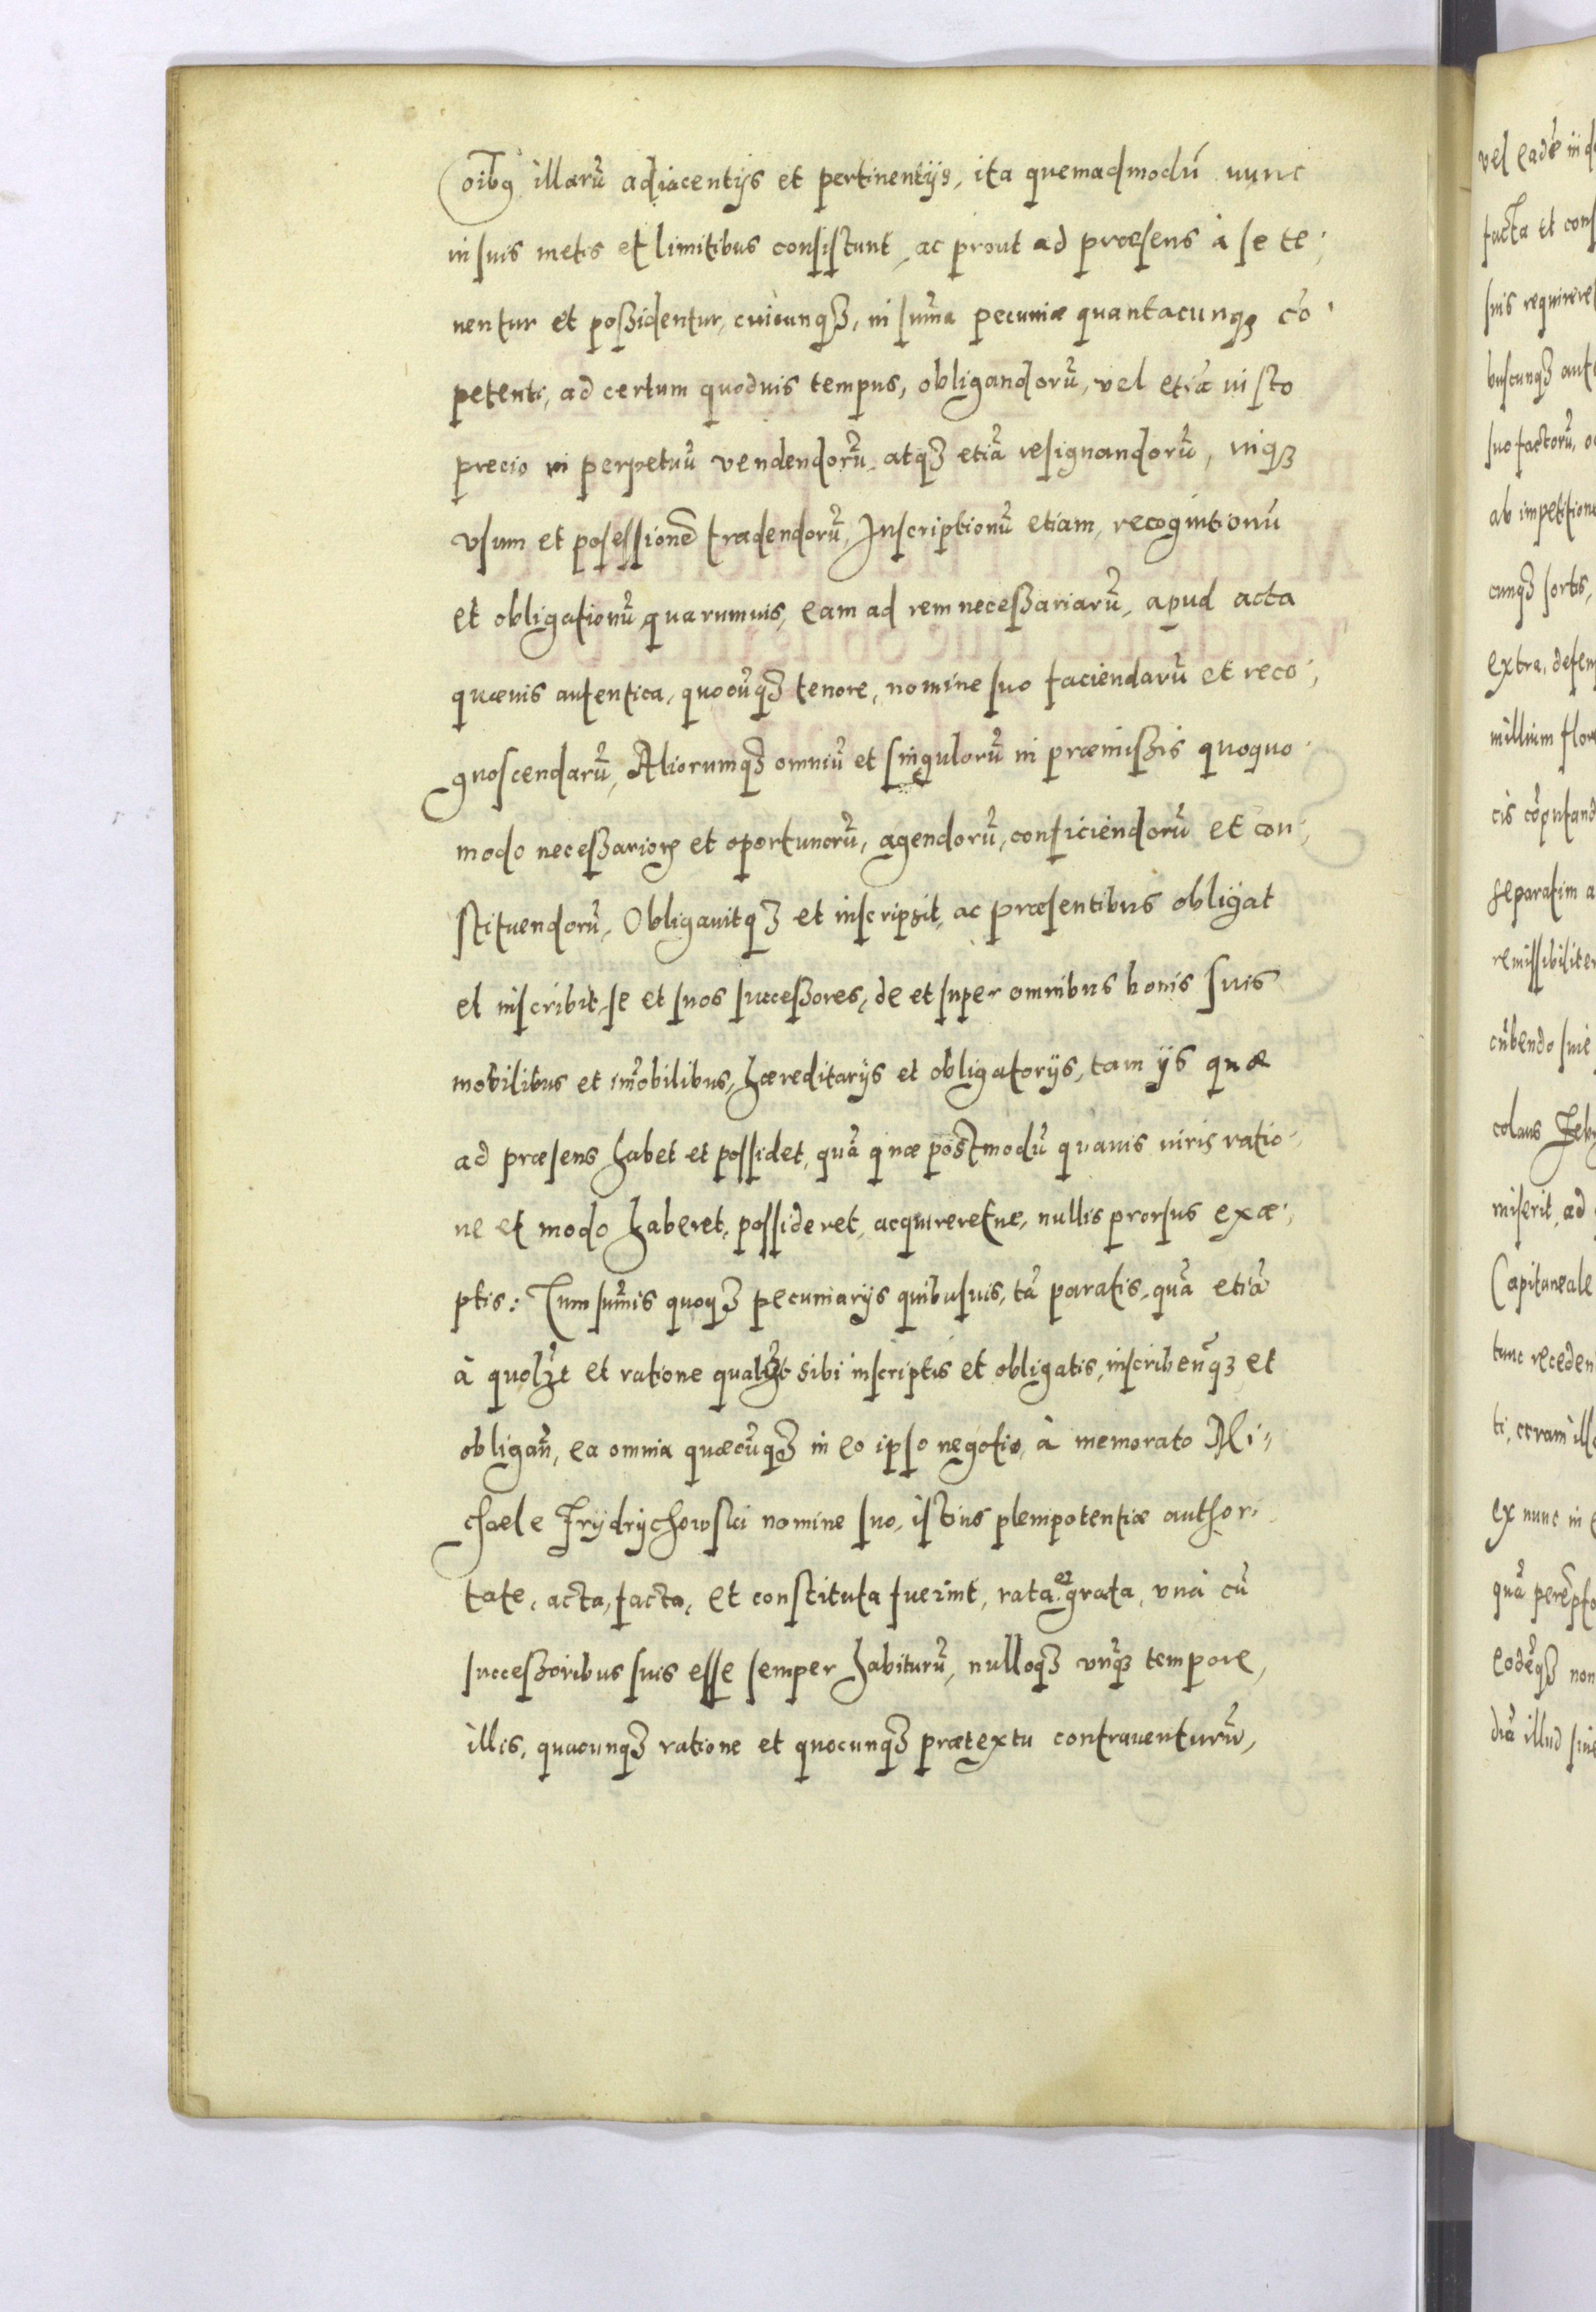 oibꝫ illarũ adiacentijs et pertinentijs, ita quemadmodũ nunc
in suis metis et limitibus consistunt, ac prout ad præsens à se te,
nentur et poßidentur, cuicunqꝫ, in sum̃a pecuniæ quantacunqꝫ cõ
petenti, ad certum quoduis tempus, obligandorũ, vel etiã iusto
precio in perpetuũ vendendorũ, atqꝫ etiã resignandorũ, inqꝫ
vsum et posessionẽ tradendorũ, Inscriptionũ etiam, recognitionũ
et obligationũ quarumuis, eam ad rem neceßariarũ, apud acta
quæuis autentica, quocũqꝫ tenore, nomine suo faciendarũ et reco,
gnoscendarũ, Aliorumqꝫ omniũ et singulorũ in præmißis quoquo
modo neceßarioꝝ et oportunorũ, agendorũ, conficiendorũ et con,
stituendorũ, Obligauitqꝫ et inscripsit, ac præsentibus obligat
et inscribit, se et suos succeßores, de et super omnibus bonis suis
mobilibus et im̃obilibus, hæreditarijs et obligatorijs, tam ijs quæ
ad præsens habet et possidet, quã quæ postmodũ quauis iuris ratio,
ne et modo haberet, possideret, acquireretue, nullis prorsus exæ,
ptis: Tum sum̃is quoqꝫ pecuniarijs quibusuis, tã paratis, quã etiã
à quolꝫt et ratione qualꝫt sibi inscriptis et obligatis, inscriben̄qꝫ et
obligañ, ea omnia quæcũqꝫ in eo ipso negotio, à memorato Mi,,
chaele Frydrychowski nomine suo, istius plenipotentiæ authori
tate, acta, facta, et constituta fuerint, rata et grata, vnà cũ
succeßoribus suis esse semper habiturũ, nulloqꝫ vnq̃ꝫ tempore,
illis, quacunqꝫ ratione et quocunqꝫ prætextu contrauenturũ,
vel eadẽ
facta et cons
suis requirere
buscunqꝫ aut
suo factorũ, o
ab impetitione
cunqꝫ sortis,
extra, defen
millium flor
cis cõputand
separatim a
remissibiliter
cũbendo sine
colaus
miserit, ad
Capitaneale
tunc receden
ti, coram ill
ex nunc in
quã perẽpto
eodẽqꝫ non
diã illud sine